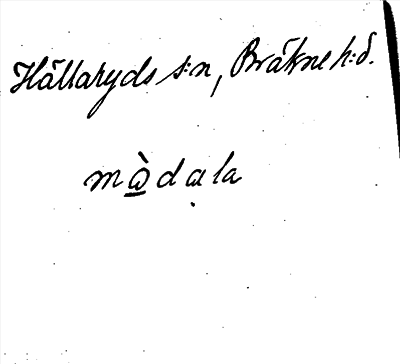 Hällaryds s:n, Bräkne h:d.
mὼ̲dạla